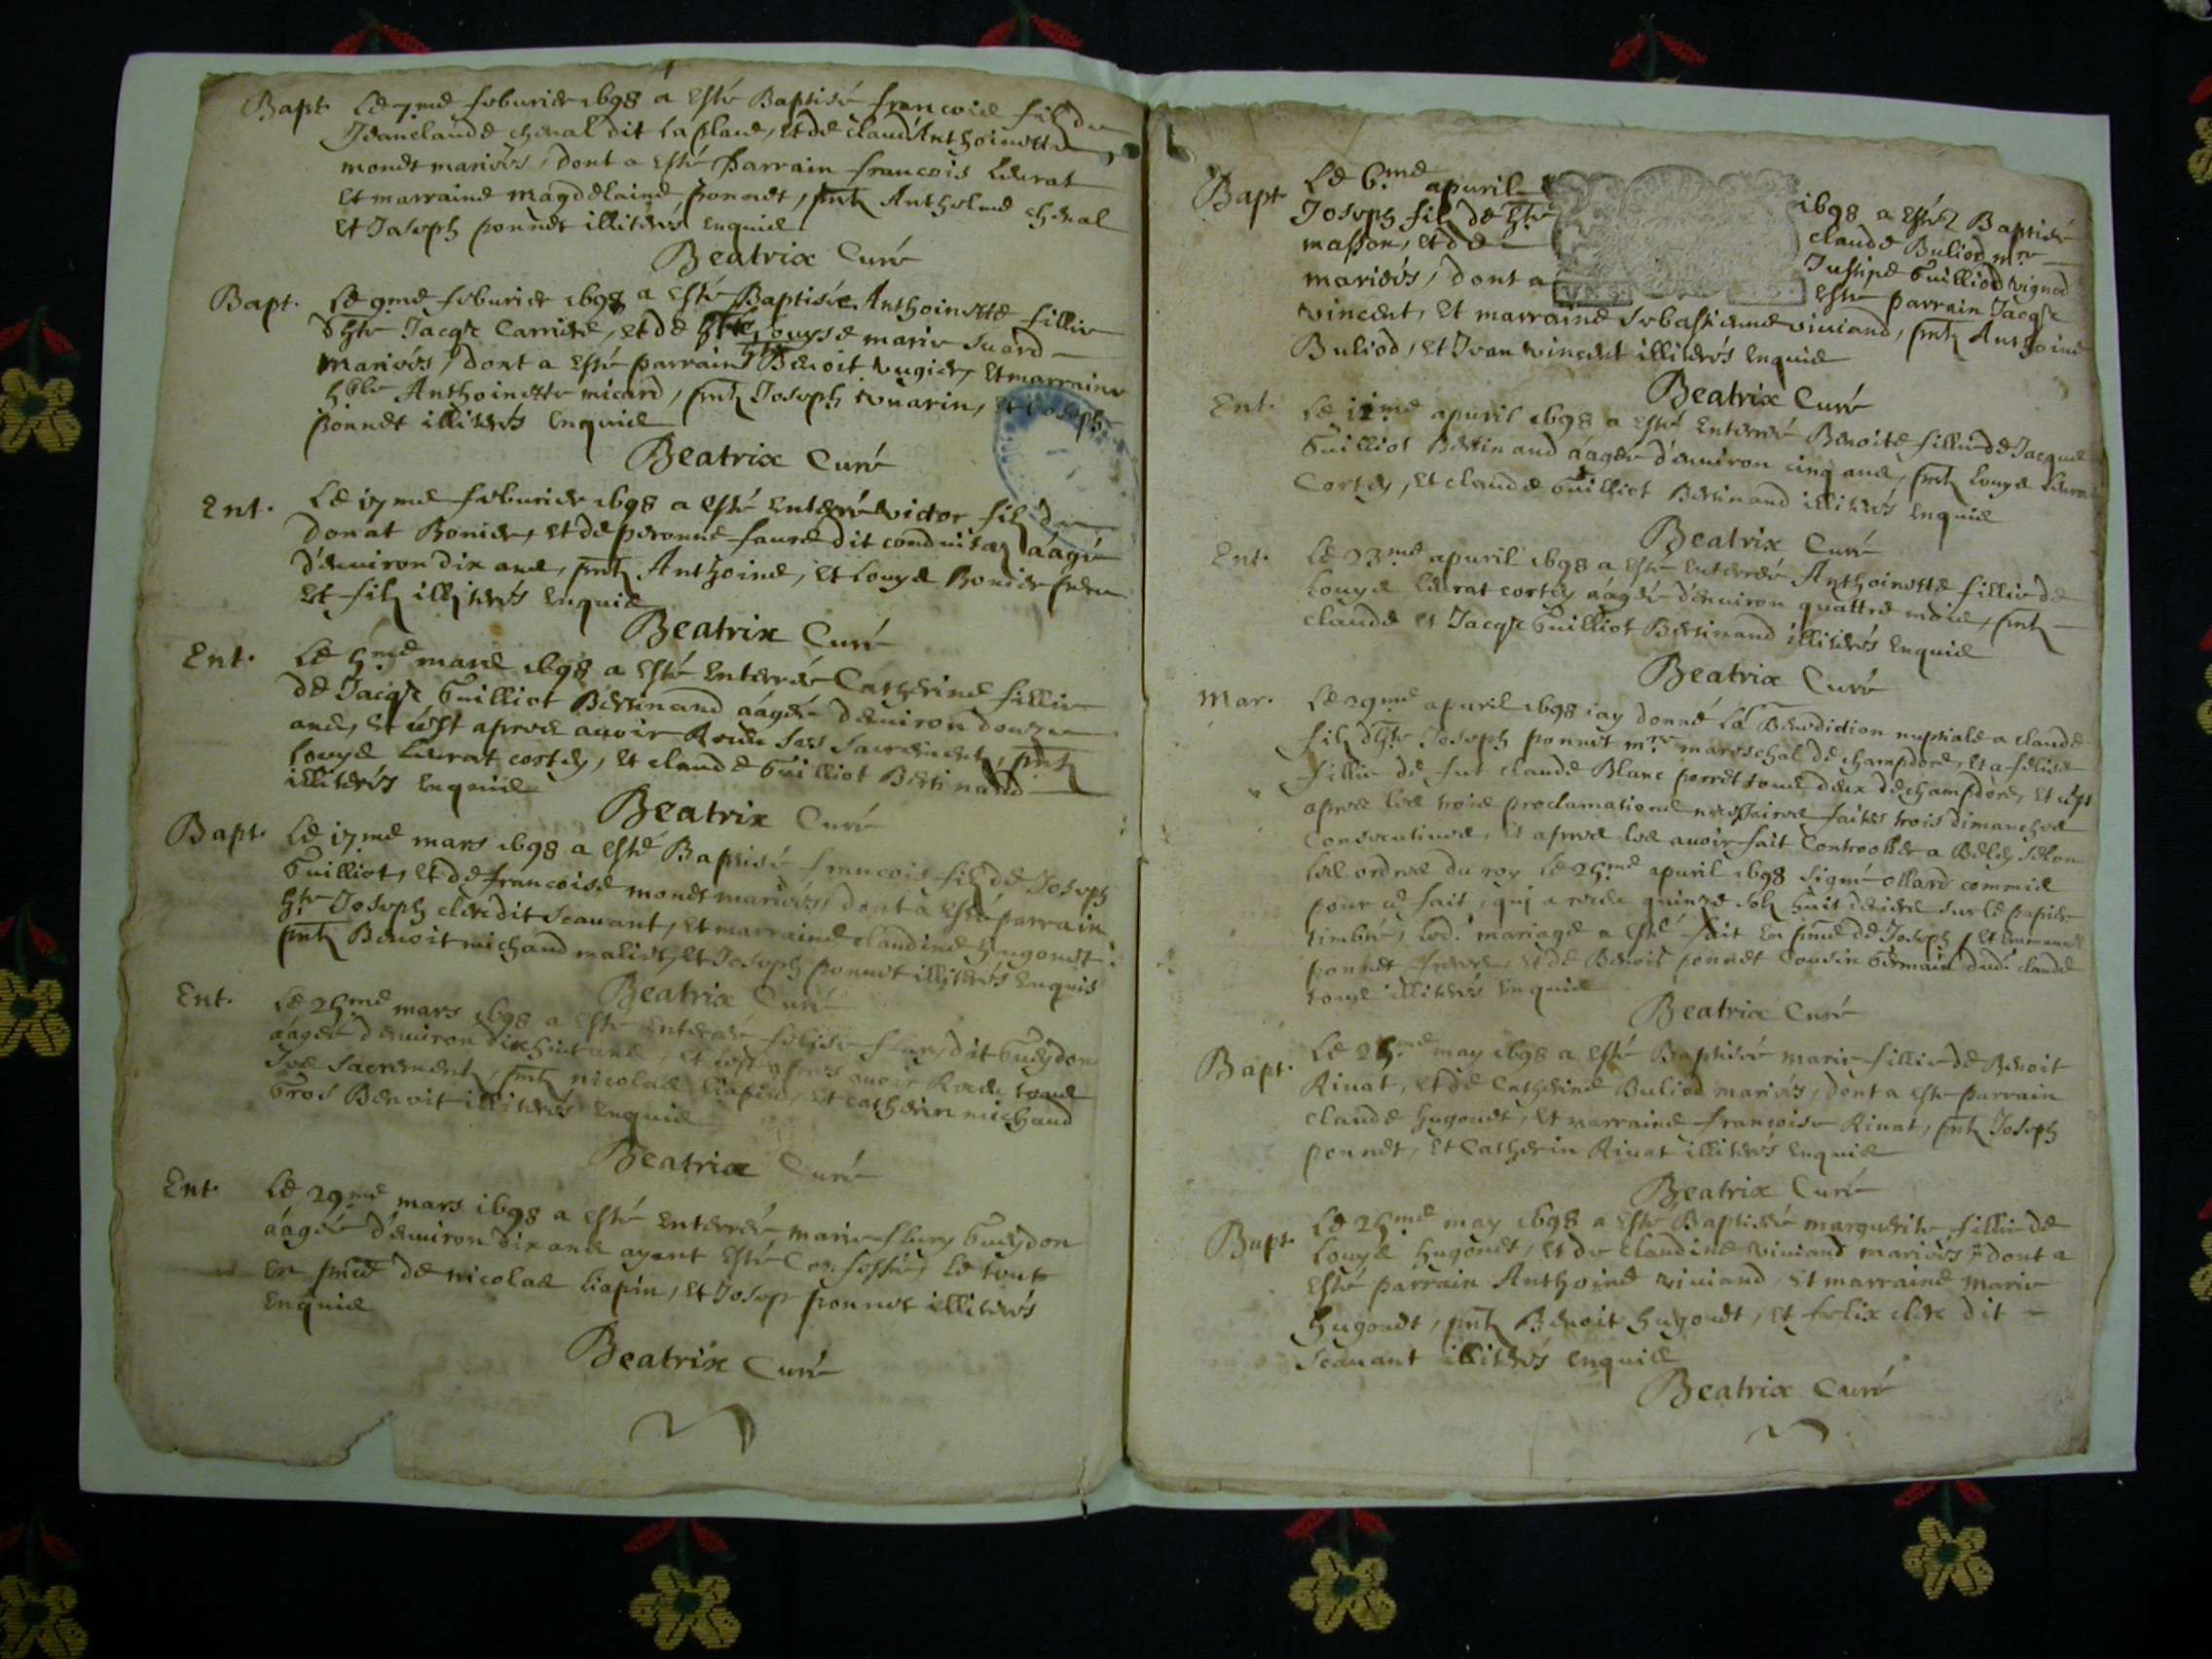 Bapt. Le 7.me feburier 1698 a esté Baptisé francois filz de
Jeanclaude cheval dit la place, et de claud'Anthoinette
monet mariés, dont a esté parrain francois Levrat
et marraine magdelaine ponnet, pntz Anthelme cheval
et Joseph ponnet illiterés enquis
Beatrix Curé
Bapt. Le 9.me feburier 1698 a esté Baptisée Anthoinette fillie
d'hte Jacqe Carrier, et de Louyse marie Suard
mariés, dont a esté parrain hte Benoit vugier, et marraine
hble Anthoinette micard, pntz Joseph vuarin, et Joseph
ponnet illiterés enquis
Beatrix Curé
Ent. Le 17 me feburier 1698 a esté enterré victor filz de
donat Bonier, et de peronne faure dit conduitaz áágé
d'environ dix ans, pntz Anthoine, et Louys Bonier pere
et filz illiterés enquis
Beatrix Curé
Ent. Le 5.me mars 1698 a esté enterrée Catherine fillie
de Jacqe Guilliot Bertinand áágée denviron douze
ans, et c'est apres avoir Receu ses Sacrements, pntz
Louys Levrat cortey, et claude Guilliot Bertinand
illiterés enquis
Beatrix Curé
Bapt. Le 17.me mars 1698 a esté Baptisé francois filz de Joseph
Guilliot, et de francoise monet mariés, dont a esté parrain
hte Joseph clerc dit Scavant, et marraine claudine hugonet
pntz Benoit michaud malin, et Joseph ponnet illiterés enquis
Beatrix Curé
Ent. Le 25.me mars 1698 a esté enterrée felise flury dit Gueydon
áágée denviron dixhuit ans, et c'est apres avoir Receu tous
ses Sacrements, pntz nicolas liapin, et catherin michaud
Gros Benoit illiterés enquis
Beatrix Curé
Ent. Le 29.me mars 1698 a esté enterrée marie flury Gueydon
áágée d'environ dix ans ayant esté Confessée, le tout
en pnce de nicolas liapin, et Josep ponnet illiterés
enquis
Beatrix Curé
Bapt. Le 6.me apuril 1698 a esté Baptisé
Joseph filz de hte claude Buliod mre
masson, et de Jussipe Guilliod vignod
mariés, dont a esté parrain Jacqe
vincent, et marraine Sebastienne viviand, pntz Anthoine
Buliod, et Jvan vincent illiterés enquis
Beatrix Curé
Ent. Le 11.me apuril 1698 a esté enterrée Benoite fillie de Jacque
Guilliot Bertinand áágée d'environ cinq ans, pntz Louys Levrat
Cortey, et claude Guilliot Bertinand illiterés enquis
Beatrix Curé
Ent. Le 23.me apuril 1698 a esté enterrée Anthoinette fillie de
Louys Levrat cortey áágée d'environ quattre mois, pntz
claude et Jacqe Guilliot Bertinand illiterés enquis
Beatrix Curé
Mar. Le 29.me apuril 1698 iay donné la Benediction nuptiale a claude
filz d'hte Joseph ponnet mre mareschal de champdore, et a felise
fillie de fut claude Blanc perret tous deux de champdore, et c'est
apres les trois proclamations necessaires faites trois dimanches
Consecutives, et apres les avoir fait Controoller a Beley selon
les ordres du roy le 25.me apuril 1698 signé ollard commis
pour ce fait, quj a receu quinze solz huit deniers sur le papier
timbré, led. mariage a esté fait en pnce de Joseph, et
ponnet freres, et de Benoit ponnet Cousin Germain dud. claude
tous illiterés enquis
Beatrix Curé
Bapt. Le 25.me may 1698 a esté Baptisée marie fillie de Benoit
Rivat, et de Catherine Buliod mariés, dont a esté parrain
claude hugonet, et marraine françoise Rivat, pntz Joseph
ponnet, et Catherin Rivat illiterés enquis
Beatrix Curé
Bapt. Le 25.me may 1698 a esté Baptisée marguerite fillie de
Louys hugonet, et de claudine viviand mariés, dont a
esté parrain Anthoine viviand, et marraine marie
hugonet, pntz Benoit hugonet, et felix clerc dit
Scavant illiterés enquis
Beatrix Curé